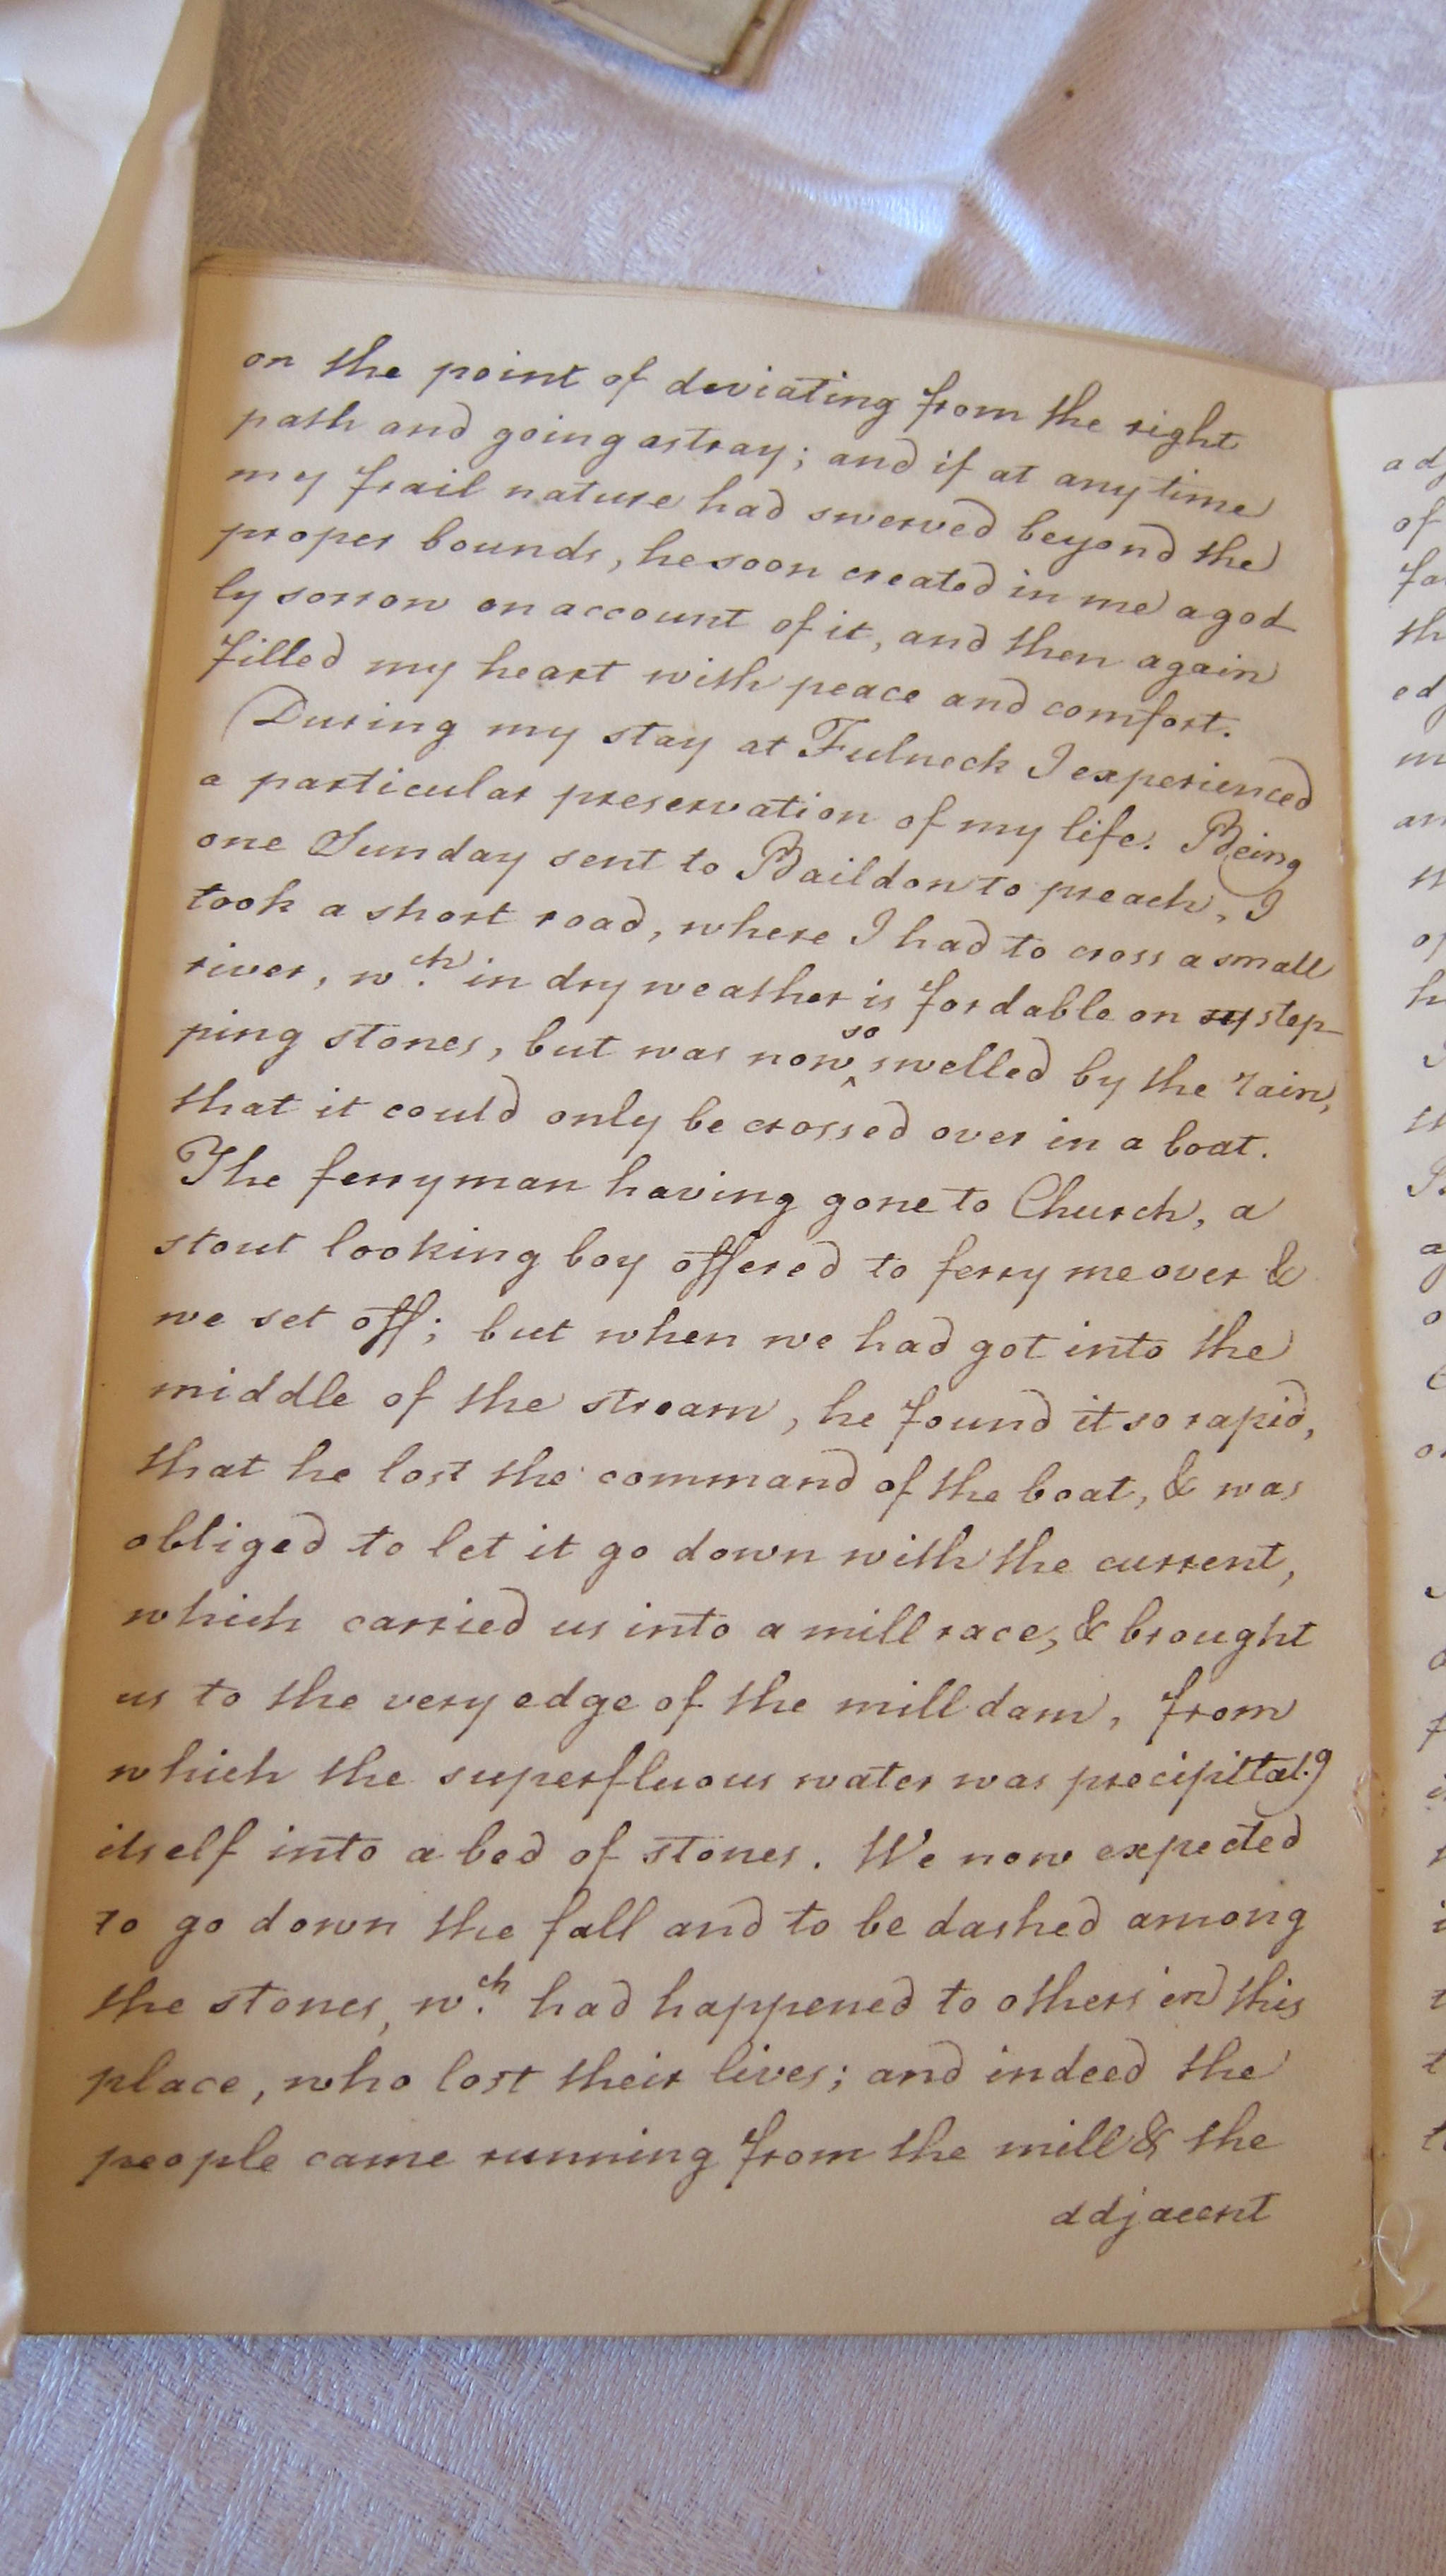 on the point of deviating from the right
path and going astray; and if at any time
my frail nature had swerved beyond the
proper bounds, he soon created in me a god
ly sorrow on account of it, and then again
filled my heart with peace and comfort.
During my stay at Fulneck I experienced
a particular preservation of my life. Being
one Sunday sent to Baildon to preach, I
took a short road, where I had to cross a small
river, wch. in dry weather is fordable on step-
ping stones, but was now so swelled by the rain,
that it could only be crossed over in a boat.
The ferryman having gone to Church, a
stout looking boy offered to ferry me over &
we set off; but when we had got into the
middle of the stream, he found it so rapid,
that he lost the command of the boat, & was
obliged to let it go down with the current,
which carried us into a mill race, & brought
us to the very edge of the mill dam, from
which the superfluous water was precipittat.g
itself into a bed of stones. We now expected
to go down the fall and to be dashed among
the stones, wch. had happened to others in this
place, who lost their lives; and indeed the
people came running from the mill & the
adjacent